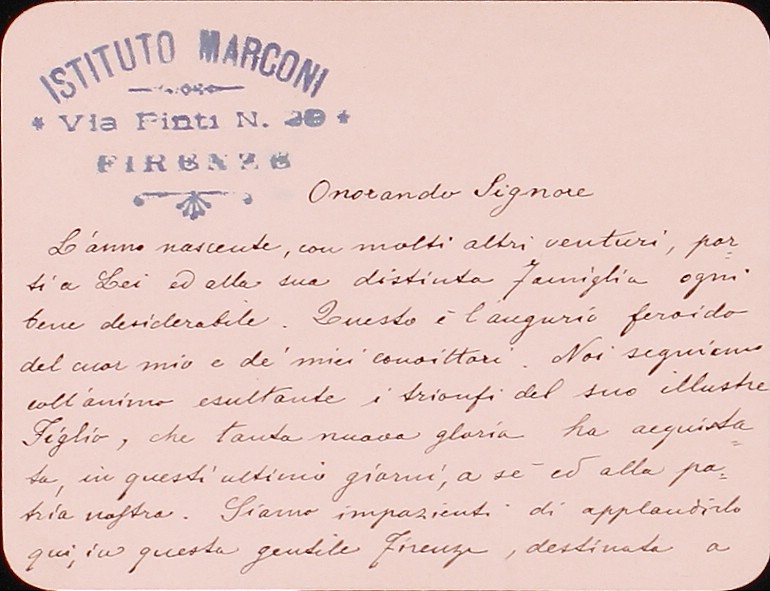 ISTITUTO MARCONI
* Via Pinti N. 29 *
FIRENZE
Onorando Signore
L'anno nascente, con molti altri venturi, por=
ti a Lei ed alla sua distinta Famiglia ogni
bene desiderabile. Questo è l'augurio fervido
del cuor mio e de' miei convittori. Noi seguiamo
coll'animo esultante i trionfi del suo illustre
Figlio, che tanta nuova gloria ha acquista=
ta, in questi ultimi giorni, a sè ed alla pa=
tria nostra. Siamo impazienti di applaudirlo
qui, in questa gentile Firenze, destinata a